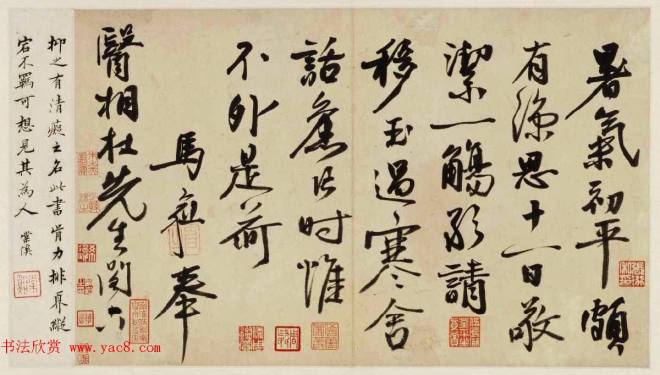 暑氣初平頗
有涼思十一日敬
潔一觴敢請
移玉過寒舍
話舊片時惟
不外是荷
馬愈奉
醫相杜先生閣下
抑之有清癡之名此書骨力排奡縱
宕不羈可想見其為人
书法欣赏 www.yac8.com